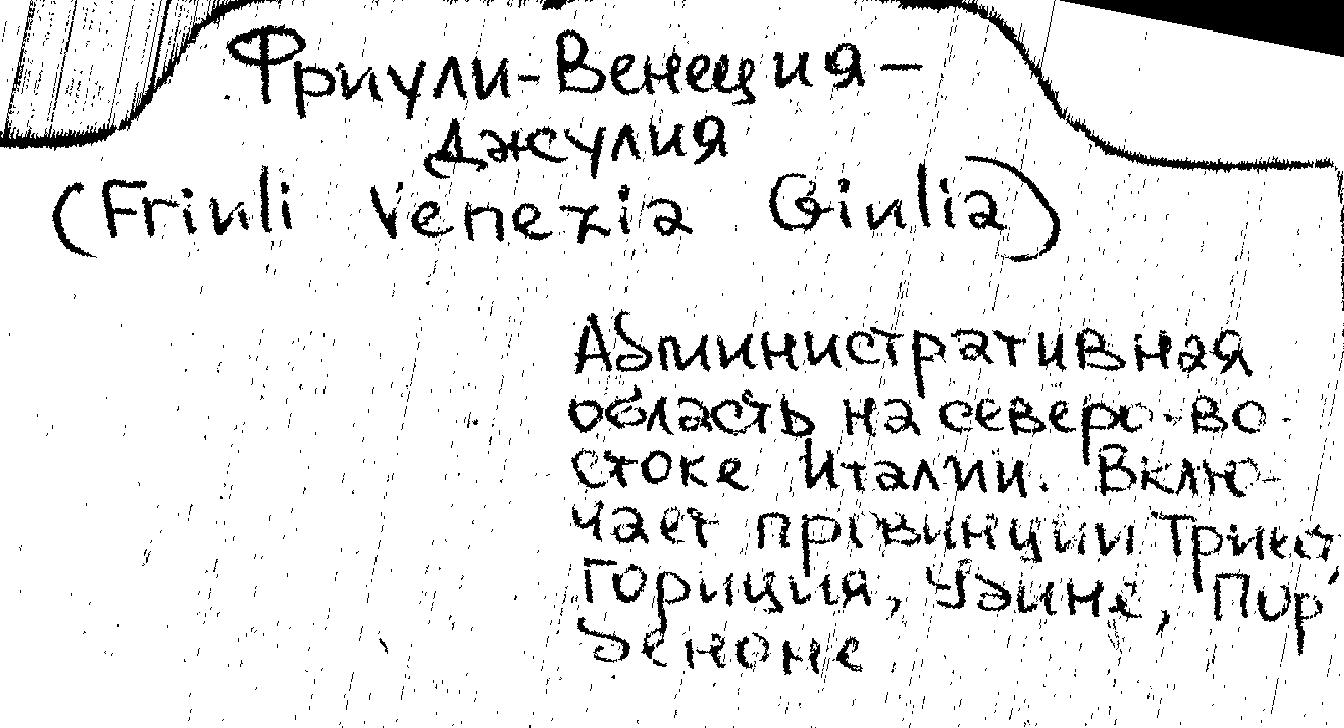 Фриули-Венеция-
Джулия
(Friuli Venezia Giulia)
Административная
область на северо-во-
стоке Италии. Вклю-
чает провинции Триест,
Гориция, Удине, Пор
деноне